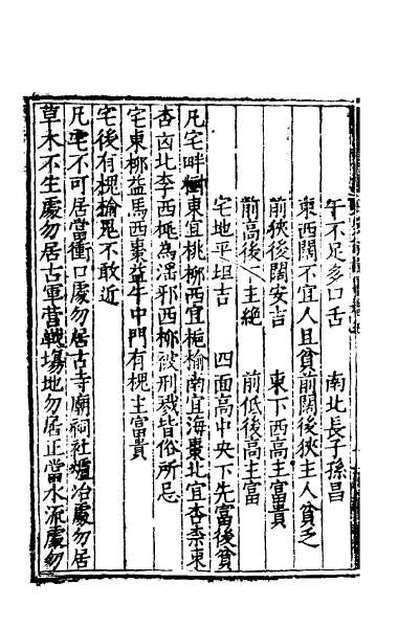 午不足多口舌　南北長子孫昌
東西闊不宜人且貧前闊後狹主人貧乏
前狹後闊安吉　東下西高主富貴
前高後下主絶　前低後高主富
宅地平坦吉　四面高中央下先富後貧
凡宅畔東宜桃柳西宜梔榆南宜海棗北宜杏柰東
杏凶北李西桃為滛邪西柳被刑戮皆俗所忌
宅東柳益馬西棗益牛中門有槐主富貴
宅後有槐榆鬼不敢近
凡宅不可居當衝口處勿居古寺廟祠社爐冶處勿居
草木不生處勿居古軍營戰塲地勿居正當水流處勿